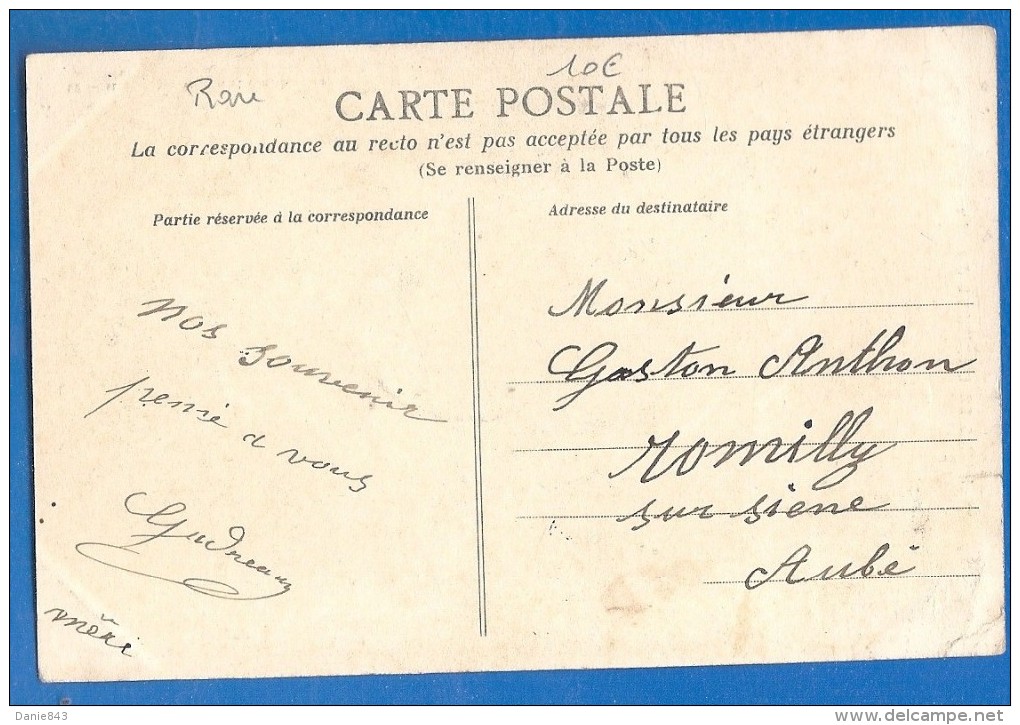 Rare
10€
CARTE POSTALE
La correspondance au recto n'est pas acceptée par tous les pays étrangers
(Se renseigner à la Poste)
Partie réservée à la correspondance
nos souvenir
pensé a vous
méri
Adresse du destinataire
Monsieur
Gaston Anthon
romilly
sur siene
Aube
Danie843
www.delcampe.net